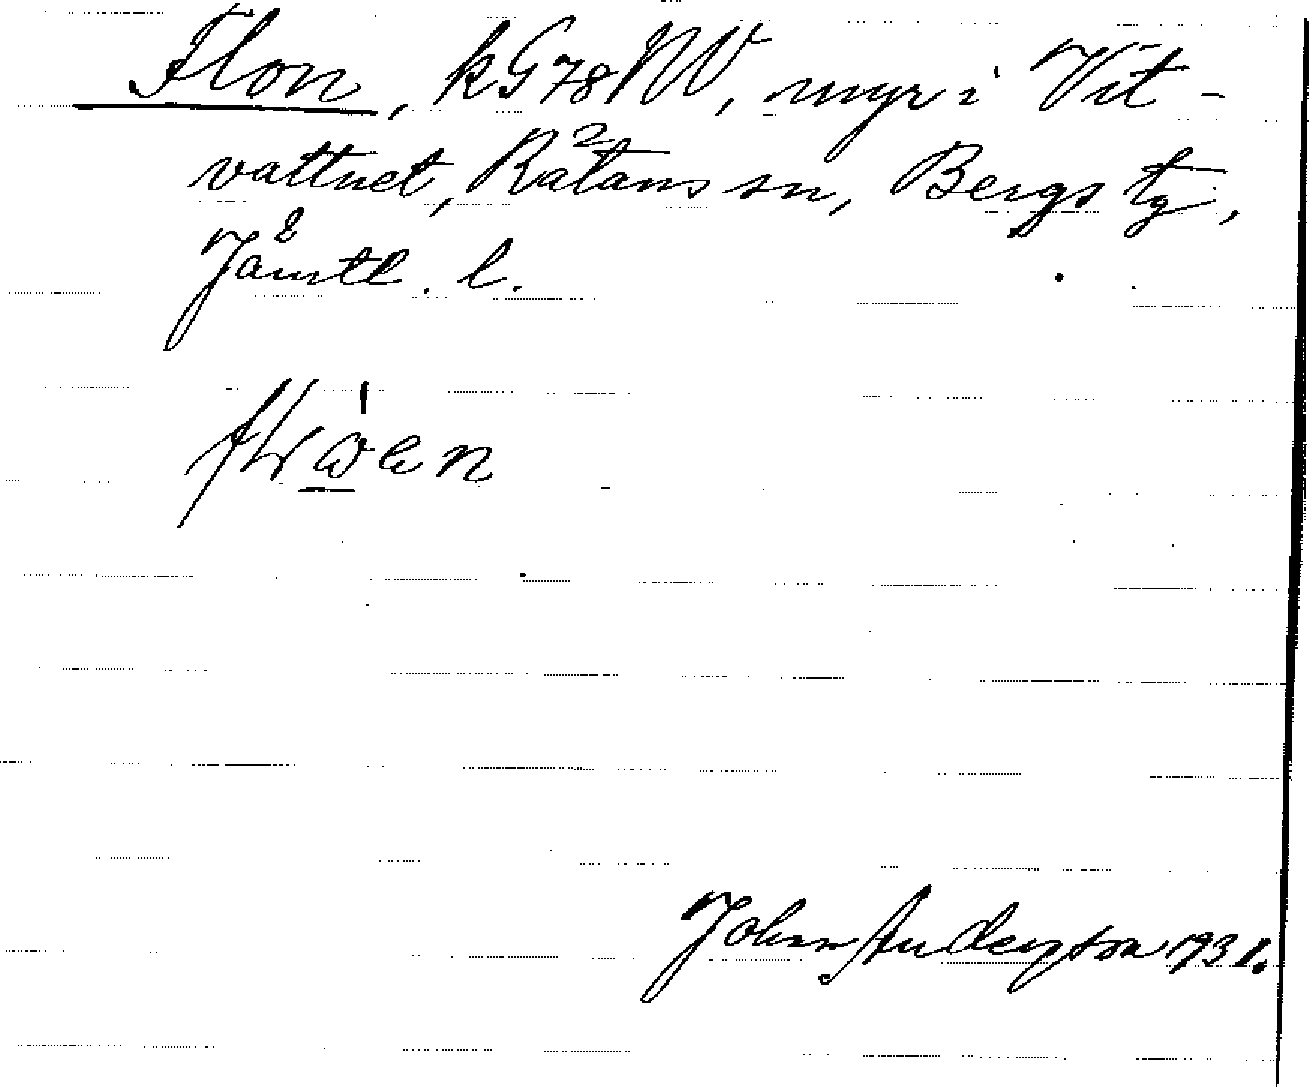 Flon, kG78NV, myr i Vit-
vattnet, Råtans sn, Bergs tg,
Jämtl. l.
John Anderson 1931.